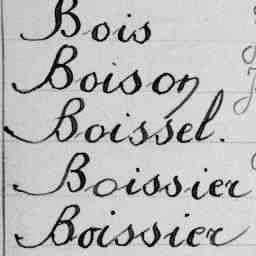 Bois
Boison
Boissel.
Boissier
Boissier